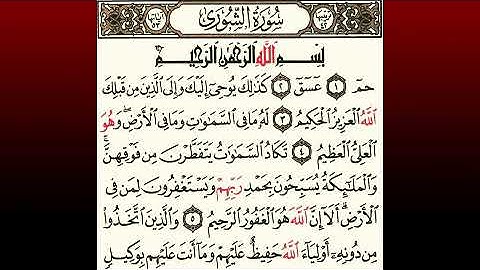 سُورَةُ الشُّورَىٰ
بِسْمِ اللَّهِ الرَّحْمَٰنِ الرَّحِيمِ
حمٓ ۝١ عٓسٓقٓ ۝٢ كَذَٰلِكَ يُوحِىٓ إِلَيْكَ وَإِلَى ٱلَّذِينَ مِن قَبْلِكَ
ٱللَّهُ ٱلْعَزِيزُ ٱلْحَكِيمُ ۝٣ لَهُۥ مَا فِى ٱلسَّمَٰوَٰتِ وَمَا فِى ٱلْأَرْضِ ۖ وَهُوَ
ٱلْعَلِىُّ ٱلْعَظِيمُ ۝٤ تَكَادُ ٱلسَّمَٰوَٰتُ يَتَفَطَّرْنَ مِن فَوْقِهِنَّ ۚ
وَٱلْمَلَٰٓئِكَةُ يُسَبِّحُونَ بِحَمْدِ رَبِّهِمْ وَيَسْتَغْفِرُونَ لِمَن فِى
ٱلْأَرْضِ ۗ أَلَآ إِنَّ ٱللَّهَ هُوَ ٱلْغَفُورُ ٱلرَّحِيمُ ۝٥ وَٱلَّذِينَ ٱتَّخَذُوا۟
مِن دُونِهِۦٓ أَوْلِيَآءَ ٱللَّهُ حَفِيظٌ عَلَيْهِمْ وَمَآ أَنتَ عَلَيْهِم بِوَكِيلٍ